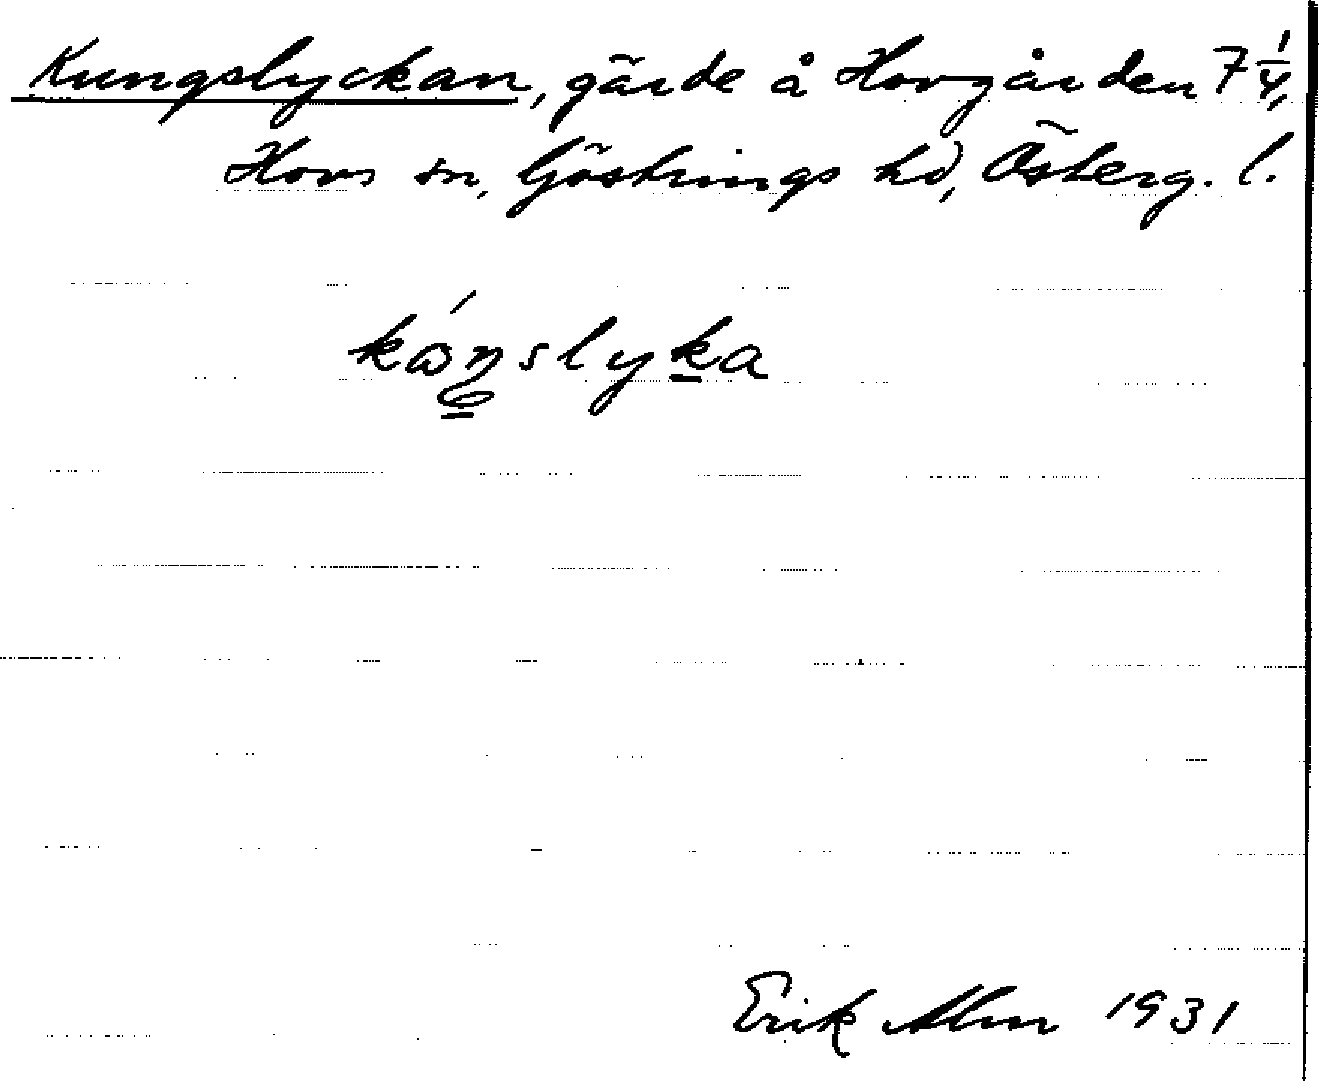 Kungslyckan, gärde å Hovgården 7 1/4,
Hovs sn, Göstrings hd, Österg. l.
kåŋslyka
Erik Alm 1931